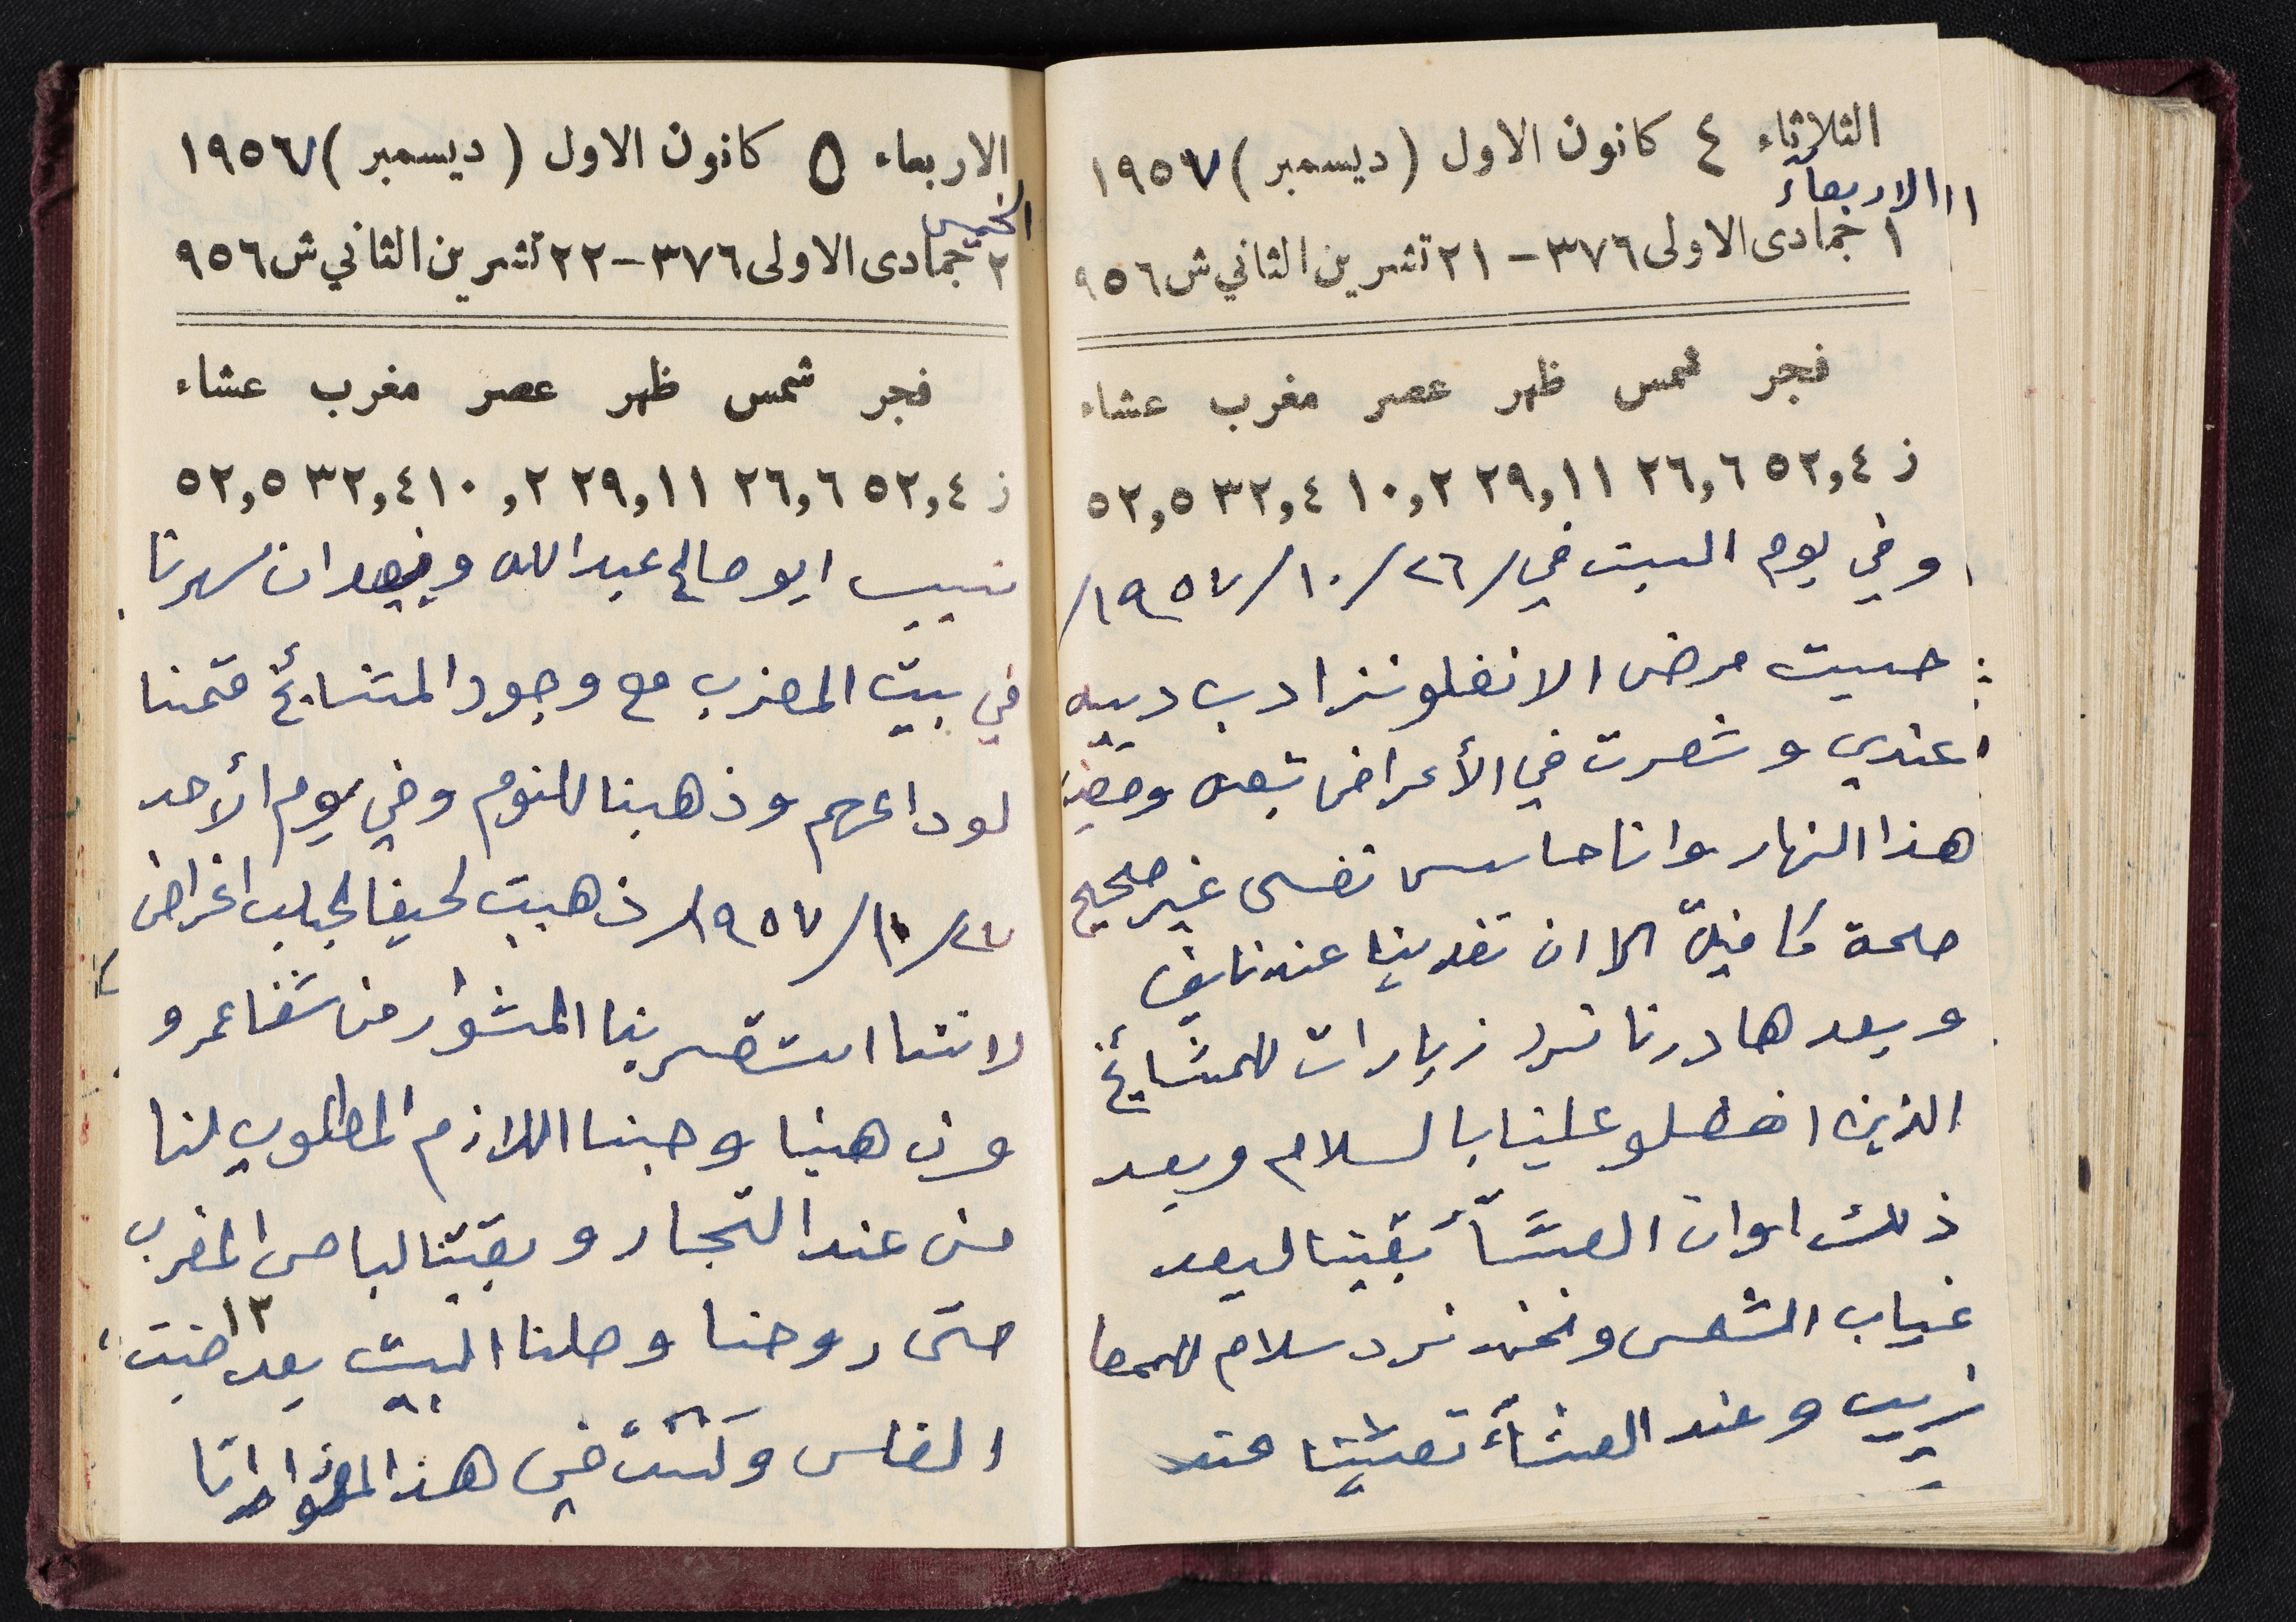 الثلاثاء ٤ كانون الاول (ديسمبر) ١٩٥٧
الاربعاء
١ جمادى الاولى ٣٧٦ – ٢١ تشرين الثاني ش ٩٥٦
فجر شمس ظهر عصر مغرب عشاء
ز ٥٢,٤ ٢٦,٦ ٢٩,١١ ١٠,٢ ٣٢,٤ ٥٢,٥
وفي يوم السبت في / ٢٦ / ١٠ / ١٩٥٧ /
حسيت مرض الانفلونزا دب دبيبه
عندي وشعرت في الأعراض تبعه وقضيت
هذا النهار وانا حاسس نفسي غير صحيح
صحة كافيةً الا ان تغدينا عند نايف
وبعدها درنا نرد زيارات للمشائخ
الذين افضلو علينا بالسلام وبعد
ذلك اوان العشآء بقينا لبعد
غياب الشمس ونحن نرد سلام للمعا
زيب وعند العشآء تعشينا عند
الاربعاء ٥ كانون الاول (ديسمبر) ١٩٥٦٧
الخميس
٢ جمادى الاولى ٣٧٦ – ٢٢ تشرين الثاني ش ٩٥٦
فجر شمس ظهر عصر مغرب عشاء
ز ٥٢,٤ ٢٦,٦ ٢٩,١١ ١٠,٢ ٣٢,٤ ٥٢,٥
نسيب ابو صالح عبدالله وبعد ان سهرنا
في بيت المعزب مع وجود المشائخ قمنا
لوداعهم وذهبنا للنوم وفي يوم الأحد
٢٧ / ١٠ / ١٩٥٧ / ذهبت لحيفا لجلب اغراض
لاننا استقربنا المشوار من شفاعمرو
وذهبنا وجبنا اللازم المطلوب لنا
من عند التجار وبقينا لباص المغرب
حتى روحنا وصلنا البيت بعد ١٢
الفاس وكنت في هذا